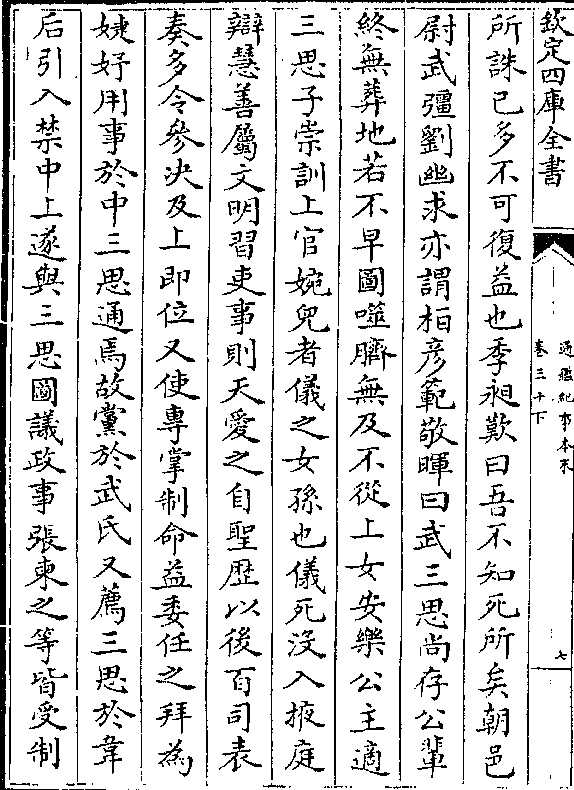 欽定四庫全書
通鑑紀事本末
卷三十下
七
所誅已多不可復益也季昶歎曰吾不知死所矣朝邑
尉武彊劉幽求亦謂柏彥範敬暉曰武三思尚存公輩
終無葬地若不早圖噬臍無及不從上女安樂公主適
三思子崇訓上官婉兒者儀之女孫也儀死沒入掖庭
辯慧善屬文明習吏事則天愛之自聖歴以後百司表
奏多令參決及上即位又使專掌制命益委任之拜為
婕妤用事於中三思通焉故黨於武氏又薦三思於韋
后引入禁中上遂與三思圖議政事張柬之等皆受制